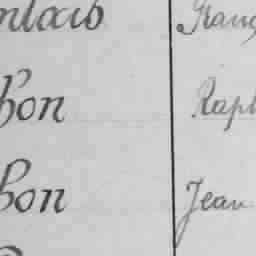 ntoais Franç
Bon Raph
Bon Jean